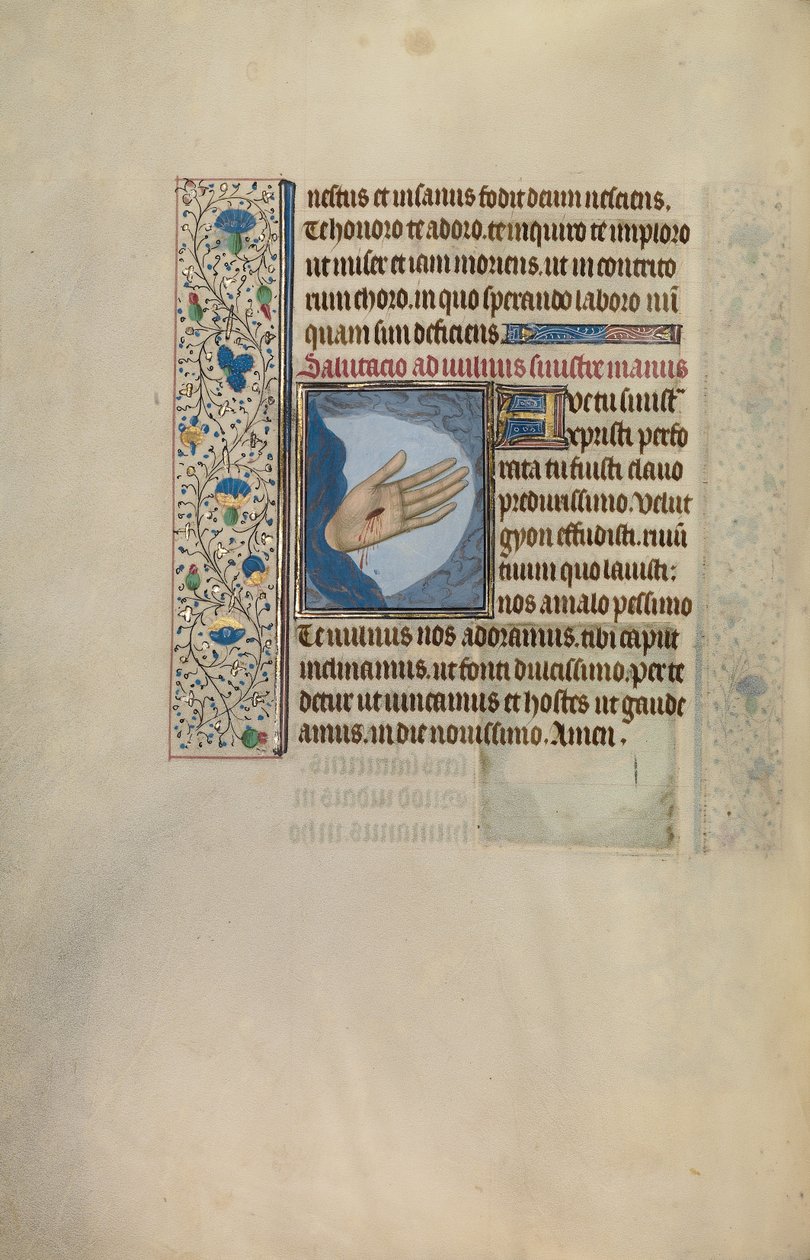 nestus et insanus fodit deum nesciens.
Te honoro te adoro. te inquiro te imploro
ut miser et iam moriens. ut in contrito
rum choro. in quo sperando laboro nū
quam sim deficiens.
Salutacio ad vulnus sinistre manus
Ave tu sinist
xpristi perfo
rata tu fuisti clavo
predurissimo. Velut
gyon effudisti. rivū
tuum quo lavisti:
nos a malo pessimo
Te vulnus nos adoramus. tibi caput
inclinamus. ut fonti dulcissimo. per te
detur ut vincamus et hostes ut gaude
amus. in die novissimo. Amen.